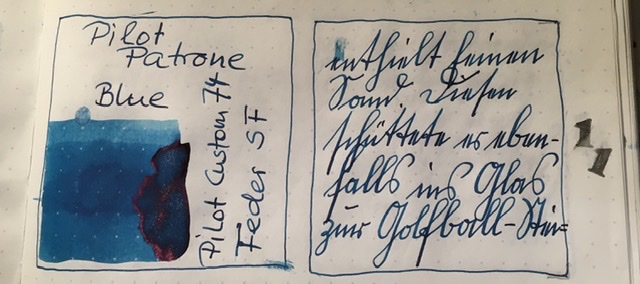 Pilot
Patrone
Blue
Pilot Custom 74
Feder SF
enthielt feinen
Sand. Diesen
schüttete er eben-
falls ins Glas
zur Golfball-Stei-
11